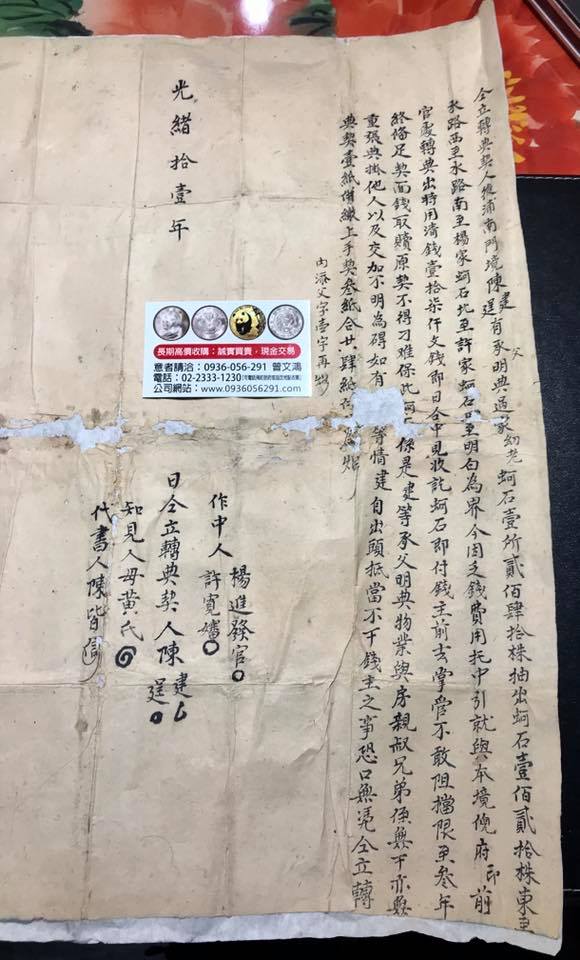 仝立轉典契人後浦南門境陳建埕有承父明典過家幼老蚵石壹所貳佰肆拾株抽出蚵石壹佰貳拾株東至
水路西至水路南至楊家蚵石北至許家蚵石四至明白為界今因乏錢費用托中引就與本境倪府即前
官處轉典出時用清錢壹拾柒仟文錢即日仝中見收訖蚵石即付錢主前去掌管不敢阻擋限至叁年
終俻足契面錢取贖原契不得刁难保此蚵石係是建等承父明典物業與房親叔兄弟侄無干亦無
重張典掛他人以及交加不明為碍如有等情建自出頭抵當不干錢主之事恐口無憑仝立轉
典契壹紙俻繳上手契叁紙合共肆紙為炤
內添父字壹字再炤
作中人 楊進發官
許寬嬸
日仝立轉典契人陳建埕
知見人母黃氏
代書人陳皆信
光緒拾壹年
長期高價收購：誠實買賣，現金交易
意者請洽：0936-056-291 曾文鴻
電話：02-2333-1230
公司網站：www.0936056291.com